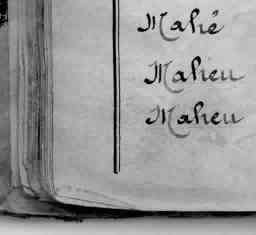 Mahé
Mahieu
Maheu